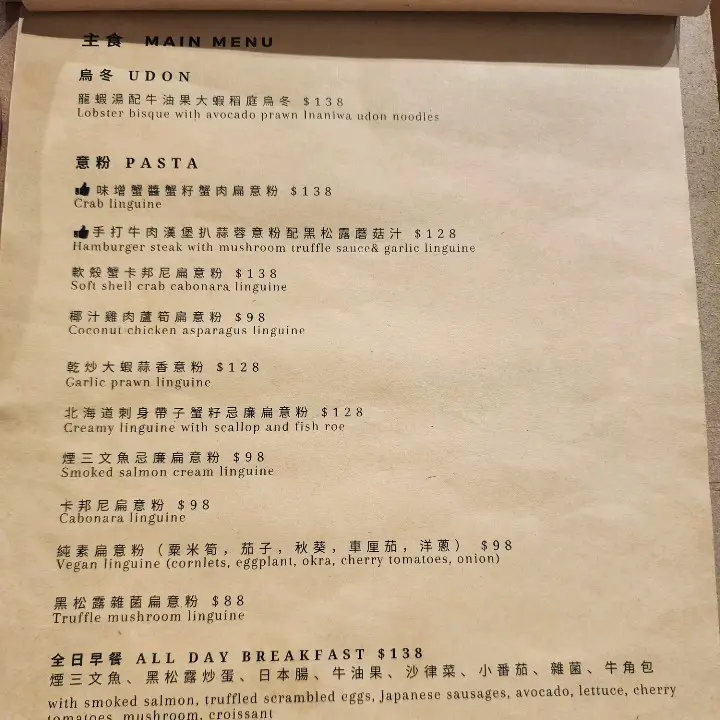 主食 MAIN MENU
烏冬 UDON
龍蝦湯配牛油果大蝦稻庭烏冬 $138
Lobster bisque with avocado prawn Inaniwa udon noodles
意粉 PASTA
味增蟹醬蟹籽蟹肉扁意粉 $138
Crab linguine
手打牛肉漢堡扒蒜蓉意粉配黑松露蘑菇汁 $128
Hamburger steak with mushroom truffle sauce& garlic linguine
軟殼蟹卡邦尼扁意粉 $138
Soft shell crab cabonara linguine
椰汁雞肉蘆筍扁意粉 $98
Coconut chicken asparagus linguine
乾炒大蝦蒜香意粉 $128
Garlic prawn linguine
北海道刺身帶子蟹籽忌廉扁意粉 $128
Creamy linguine with scallop and fish roe
煙三文魚忌廉扁意粉 $98
Smoked salmon cream linguine
卡邦尼扁意粉 $98
Cabonara linguine
純素扁意粉（粟米筍，茄子，秋葵，車厘茄，洋蔥） $98
Vegan linguine (cornlets, eggplant, okra, cherry tomatoes, onion)
黑松露雜菌扁意粉 $88
Truffle mushroom linguine
全日早餐 ALL DAY BREAKFAST $138
煙三文魚、黑松露炒蛋、日本腸、牛油果、沙律菜、小番茄、雜菌、牛角包
with smoked salmon, truffled scrambled eggs, Japanese sausages, avocado, lettuce, cherry
tomatoes, mushroom, croissant